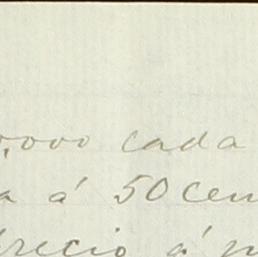 0,000 cada
a á 50 cen
precio á p